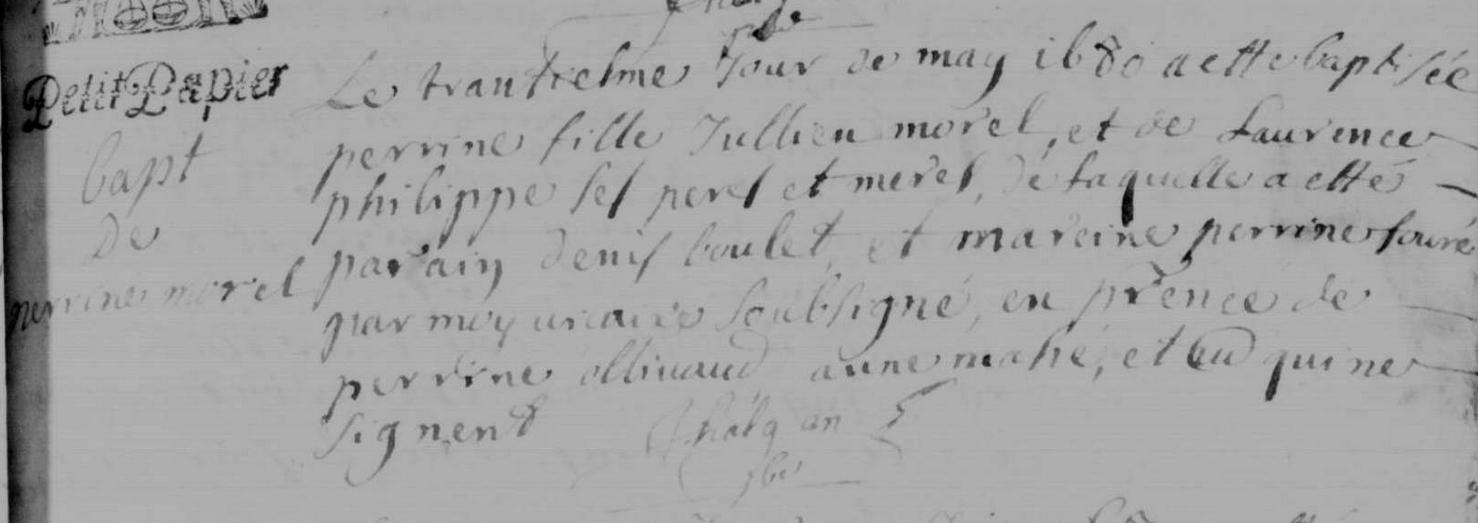 Petit Papier
bapt
de
perrine morel
Le trantiesme Jour de may 1680 a ette baptisée
perrine fille Jullien morel, et de Laurence
philippe ses peres et meres, de laquelle a etté
parain denis boulet, et mareine perrine fouré
par moy vicaire soubsigné, en prence de
perrine ollivaud anne mahé, et qui ne
signent